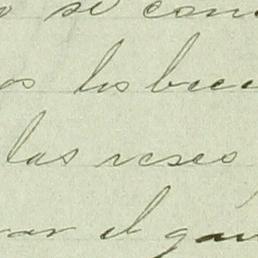 o se con
os los bece
las reses
rar el gan